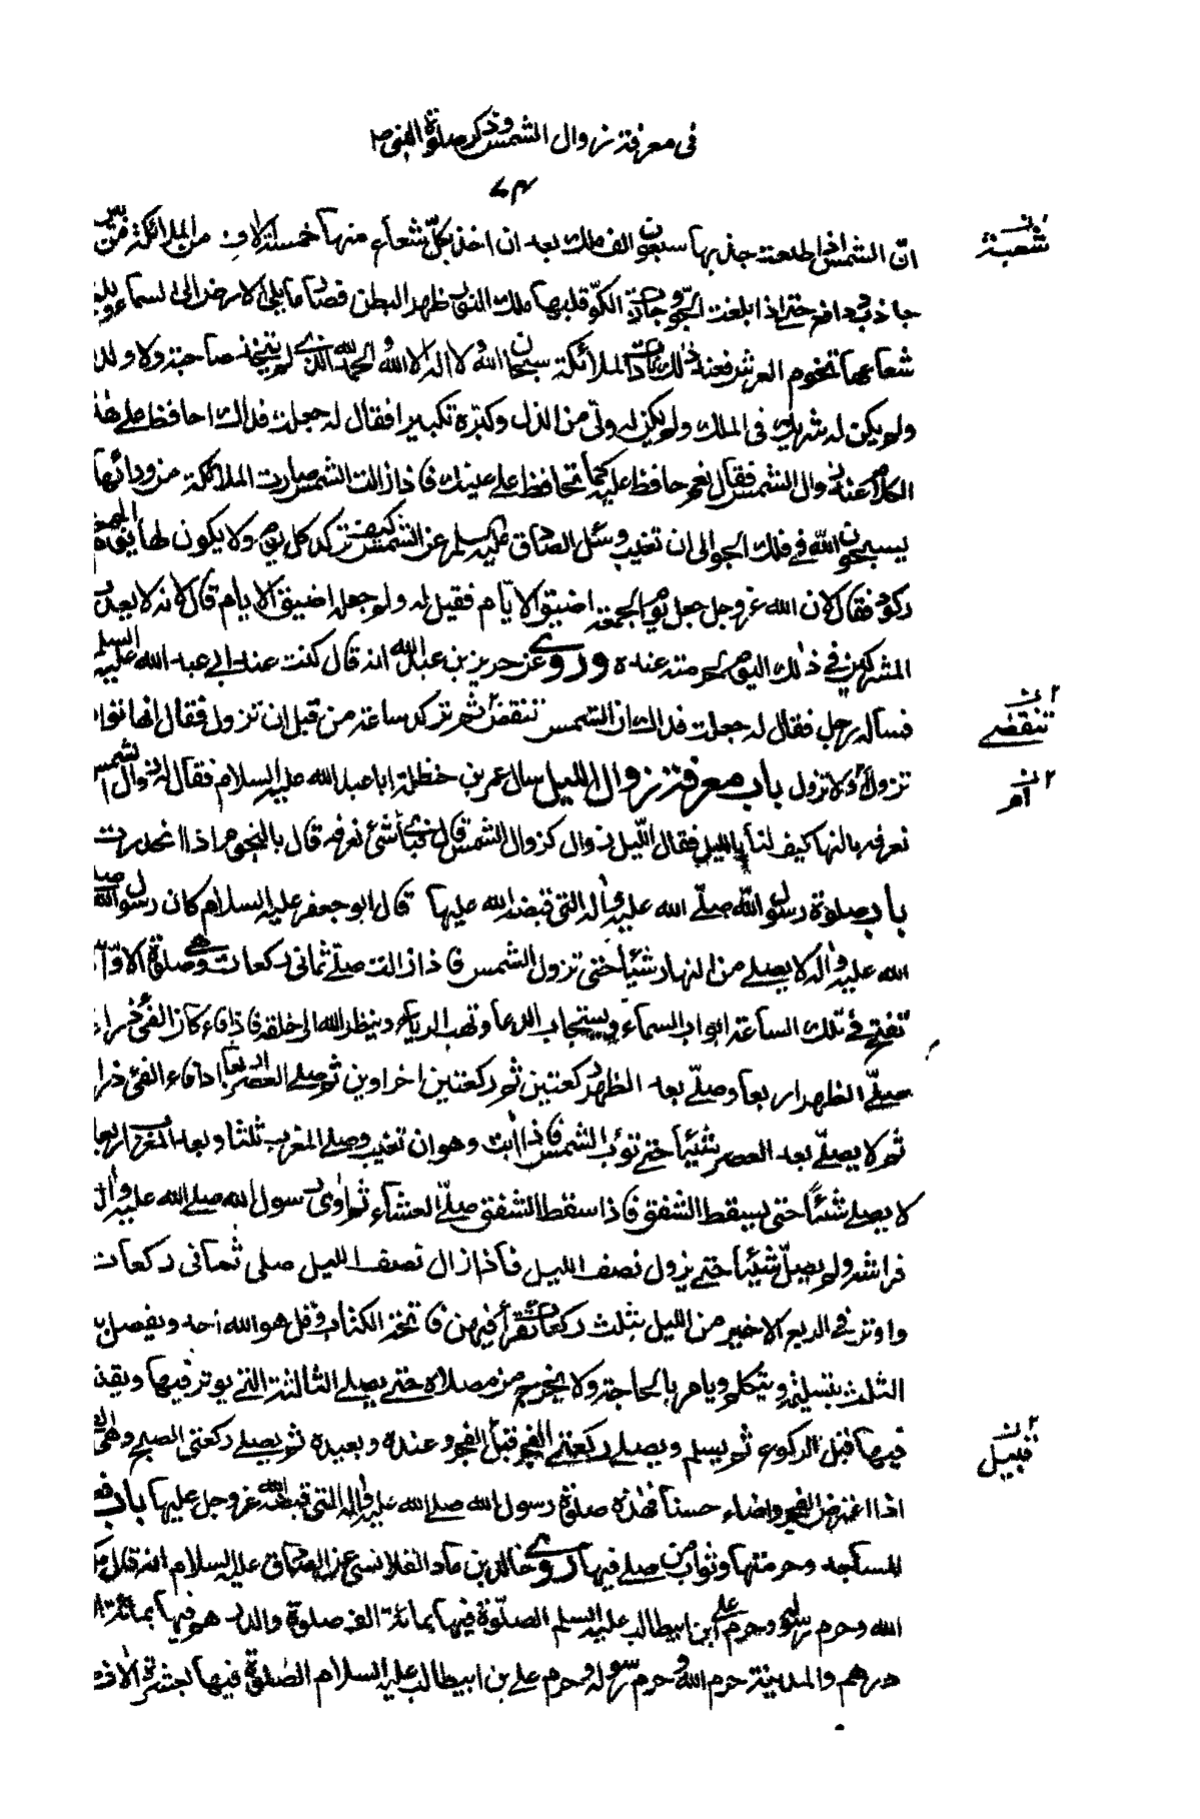 في معرفة زوال الشمس وذكر صلوة النبي ص
٧٤
انّ الشمس اذا طلعت جذبها سبعون الف ملك بعد ان اخذ بكلّ شعاع منها خمسة الاف من الملائكة من بين
شعبة
جاذب ودافع حتى اذا بلغت الجوّ وجازت الكوّ قلبها ملك النور ظهر البطن فصار ما يلي الارض الى السماء وبلغ
شعاعها تخوم العرش فعند ذلك نادت الملائكة سبحان الله ولا اله الا الله والحمد لله الذي لم يتخذ صاحبة ولا ولدا
ولم يكن له شريك في الملك ولم يكن له ولي من الذل وكبّره تكبيرا فقال له جعلت فداك احافظ على هذا
الكلام عند زوال الشمس فقال نعم حافظ عليه كما تحافظ على عينيك فاذا زالت الشمس صارت الملائكة من ورائها
يسبحون الله في فلك الجو الى ان تغيب وسئل الصادق عليه السلم عن الشمس كيف تركد كل يوم ولا يكون لها يوم الجمعة
ركود فقال لان الله عز وجل جعل يوم الجمعة اضيق الايام فقيل له ولم جعله اضيق الايام قال لانه لا يعذب
المشركين في ذلك اليوم لحرمته عنده وروى عن حريز بن عبد الله انه قال كنت عند ابي عبد الله عليه السلم
فسأله رجل فقال له جعلت فداك ان الشمس تنقض ثم تركد ساعة من قبل ان تزول فقال انها تؤامر
٢ تنقضي
تزول او لا تزول باب معرفة زوال الليل سال عمر بن حنظلة ابا عبد الله عليه السلام فقال له زوال الشمس
٢ ام
نعرفه بالنهار كيف لنا بالليل فقال الليل زوال كزوال الشمس قال فبأي شئ نعرفه قال بالنجوم اذا انحدرت
باب صلوة رسول الله صلى الله عليه واله التي قبضه الله عليها قال ابو جعفر عليه السلام كان رسول الله صلى
الله عليه واله لا يصلي من النهار شيئا حتى تزول الشمس فاذا زالت صلى ثماني ركعات وهي صلوة الاوّابين
تفتح في تلك الساعة ابواب السماء ويستجاب الدعا وتهب الرياح وينظر الله الى خلقه فاذا فاء الفئ ذراعا
صلّى الظهر اربعا وصلّى بعد الظهر ركعتين ثم ركعتين اخراوين ثم صلى العصر اربعا اذا فاء الفئ ذراعا
ثم لا يصلّي بعد العصر شيئا حتى تؤب الشمس فاذا ابت وهو ان تغيب صلى المغرب ثلثا وبعد المغرب اربعا
لا يصلي شيئا حتى يسقط الشفق فاذا سقط الشفق صلّى العشاء ثم اوى رسول الله صلى الله عليه واله
فراشه ولم يصلّ شيئا حتى يزول نصف الليل فاذا زال نصف الليل صلى ثماني ركعات
واوتر في الربع الاخير من الليل بثلث ركعات فقرأ فيهن فاتحة الكتاب وقل هو الله احد ويفصل بين
الثلث بتسليمة ويتكلم ويامر بالحاجة ولا يخرج من مصلاه حتى يصلي الثالثة التي يوتر فيها ويقنت
فيها قبل الركوع ثم يسلم ويصلي ركعتي الفجر قبل الفجر وعنده وبعيده ثم يصلي ركعتي الصبح وهي الفجر
٢ قبيل
اذا اعترض الفجر واضاء حسنا فهذه صلوة رسول الله صلى الله عليه واله التي قبضه الله عز وجل عليها باب فضل
المساجد وحرمتها وثواب من صلى فيها روى خالد بن ماد القلانسي عن الصادق عليه السلام انه قال مكة
الله وحرم رسوله وحرم علي ابن ابيطالب عليه السلم الصلوة فيها بمائة الف صلوة والدرهم فيها بمائة الف
درهم والمدينة حرم الله وحرم رسوله وحرم علي بن ابيطالب عليه السلام الصلوة فيها بعشرة الاف